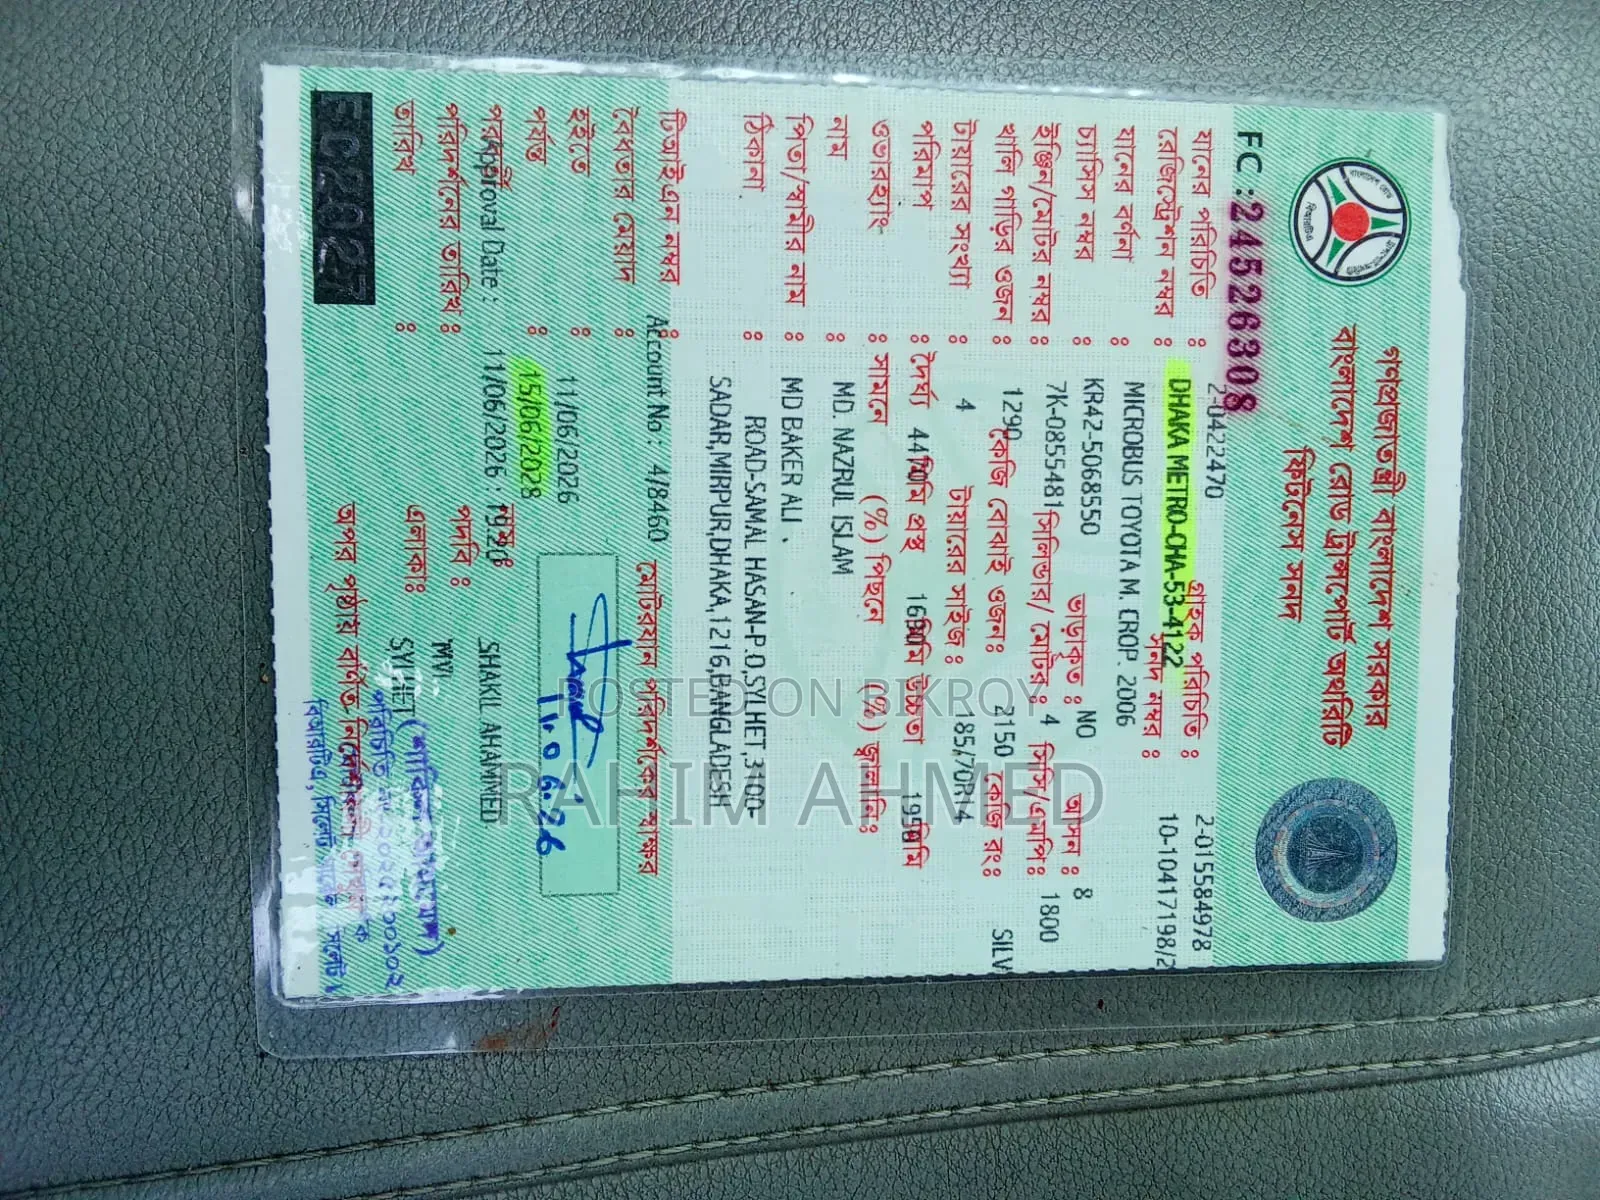 গণপ্রজাতন্ত্রী বাংলাদেশ সরকার
বাংলাদেশ রোড ট্রান্সপোর্ট অথরিটি
ফিটনেস সনদ
FC : 24526308
যানের পরিচিতি : 2-0422470 গ্রাহক পরিচিতি : 2-015584978
রেজিস্ট্রেশন নম্বর : DHAKA METRO-CHA-53-4122 সনদ নম্বর : 10-10417198/2
যানের বর্ণনা : MICROBUS TOYOTA M. CROP. 2006
চ্যাসিস নম্বর : KR42-5068550 ভাড়াকৃত : NO আসন : 8
ইঞ্জিন/মোটর নম্বর : 7K-0855481 সিলিন্ডার/ মোটর : 4 সিসি/এমপি : 1800
খালি গাড়ির ওজন : 1290 কেজি বোঝাই ওজন: 2150 কেজি রং: SILV
টায়ারের সংখ্যা : 4 টায়ারের সাইজ : 185/70R14
পরিমাপ : দৈর্ঘ্য 4470 মিমি প্রস্থ 1690 মিমি উচ্চতা 1950 মিমি
ওভারহ্যাং : সামনে (%) পিছনে (%) জ্বালানি :
নাম : MD. NAZRUL ISLAM
পিতা/স্বামীর নাম : MD BAKER ALI .
ঠিকানা : ROAD-SAMAL HASAN-P.O,SYLHET,3100-
SADAR,MIRPUR,DHAKA,1216,BANGLADESH
টিআইএন নম্বর : Account No : 4/8460
মোটরযান পরিদর্শকের স্বাক্ষর
বৈধতার মেয়াদ :
হইতে : 11/06/2026
11.06.26
পর্যন্ত : 15/06/2028
Approval Date : 11/06/2026 : 19:20
SHAKIL AHAMMED
পরিদর্শনের তারিখ : পদবি : MVI
তারিখ : এলাকা: SYLHET
অপর পৃষ্ঠায় বর্ণিত
POSTED ON BIKROY
RAHIM AHMED